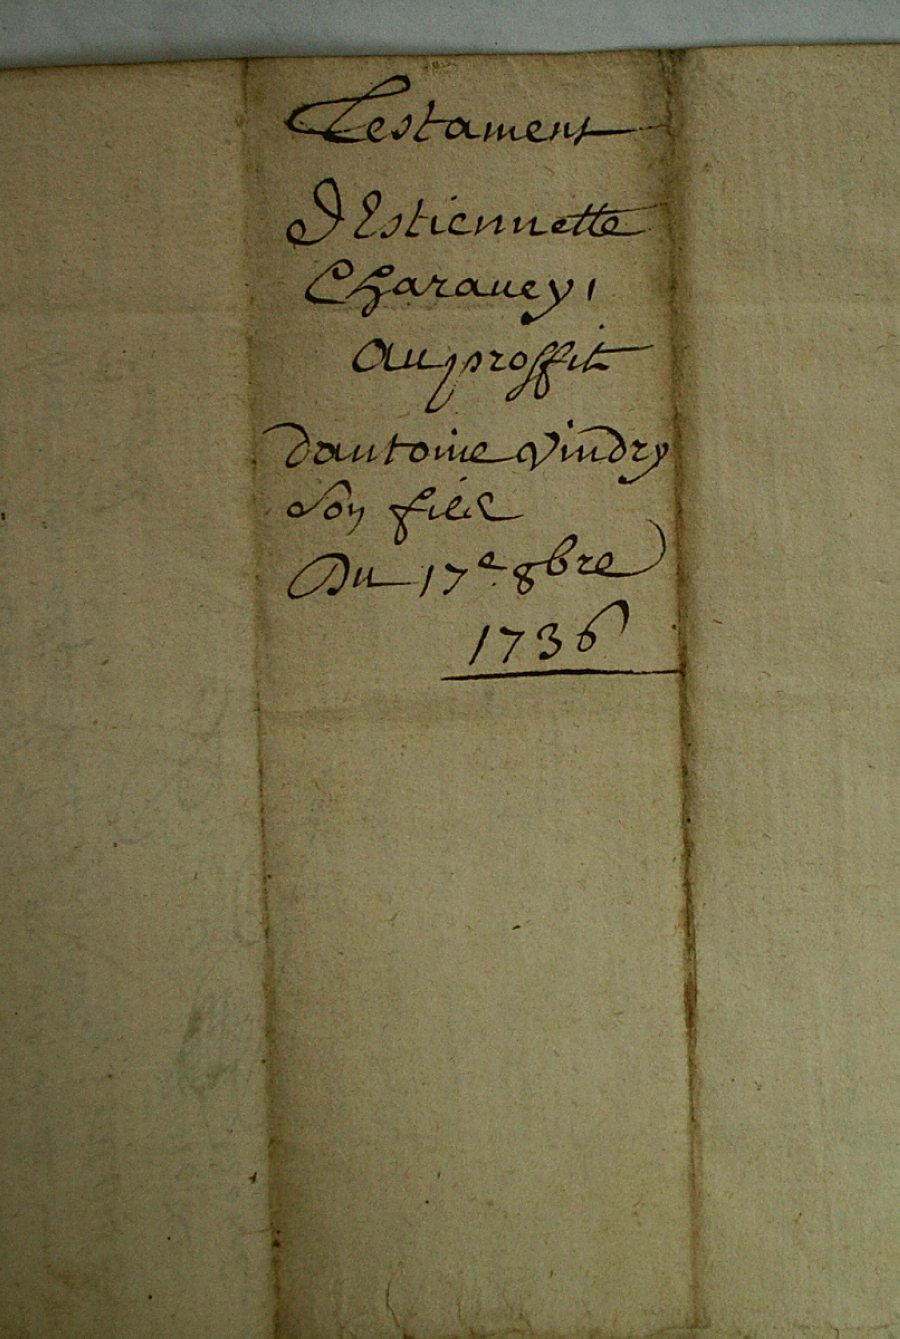 Testament
d'Estiennette
Charauey,
au proffit
dantoine Vindry
Son fils
Du 17e 8bre
1736